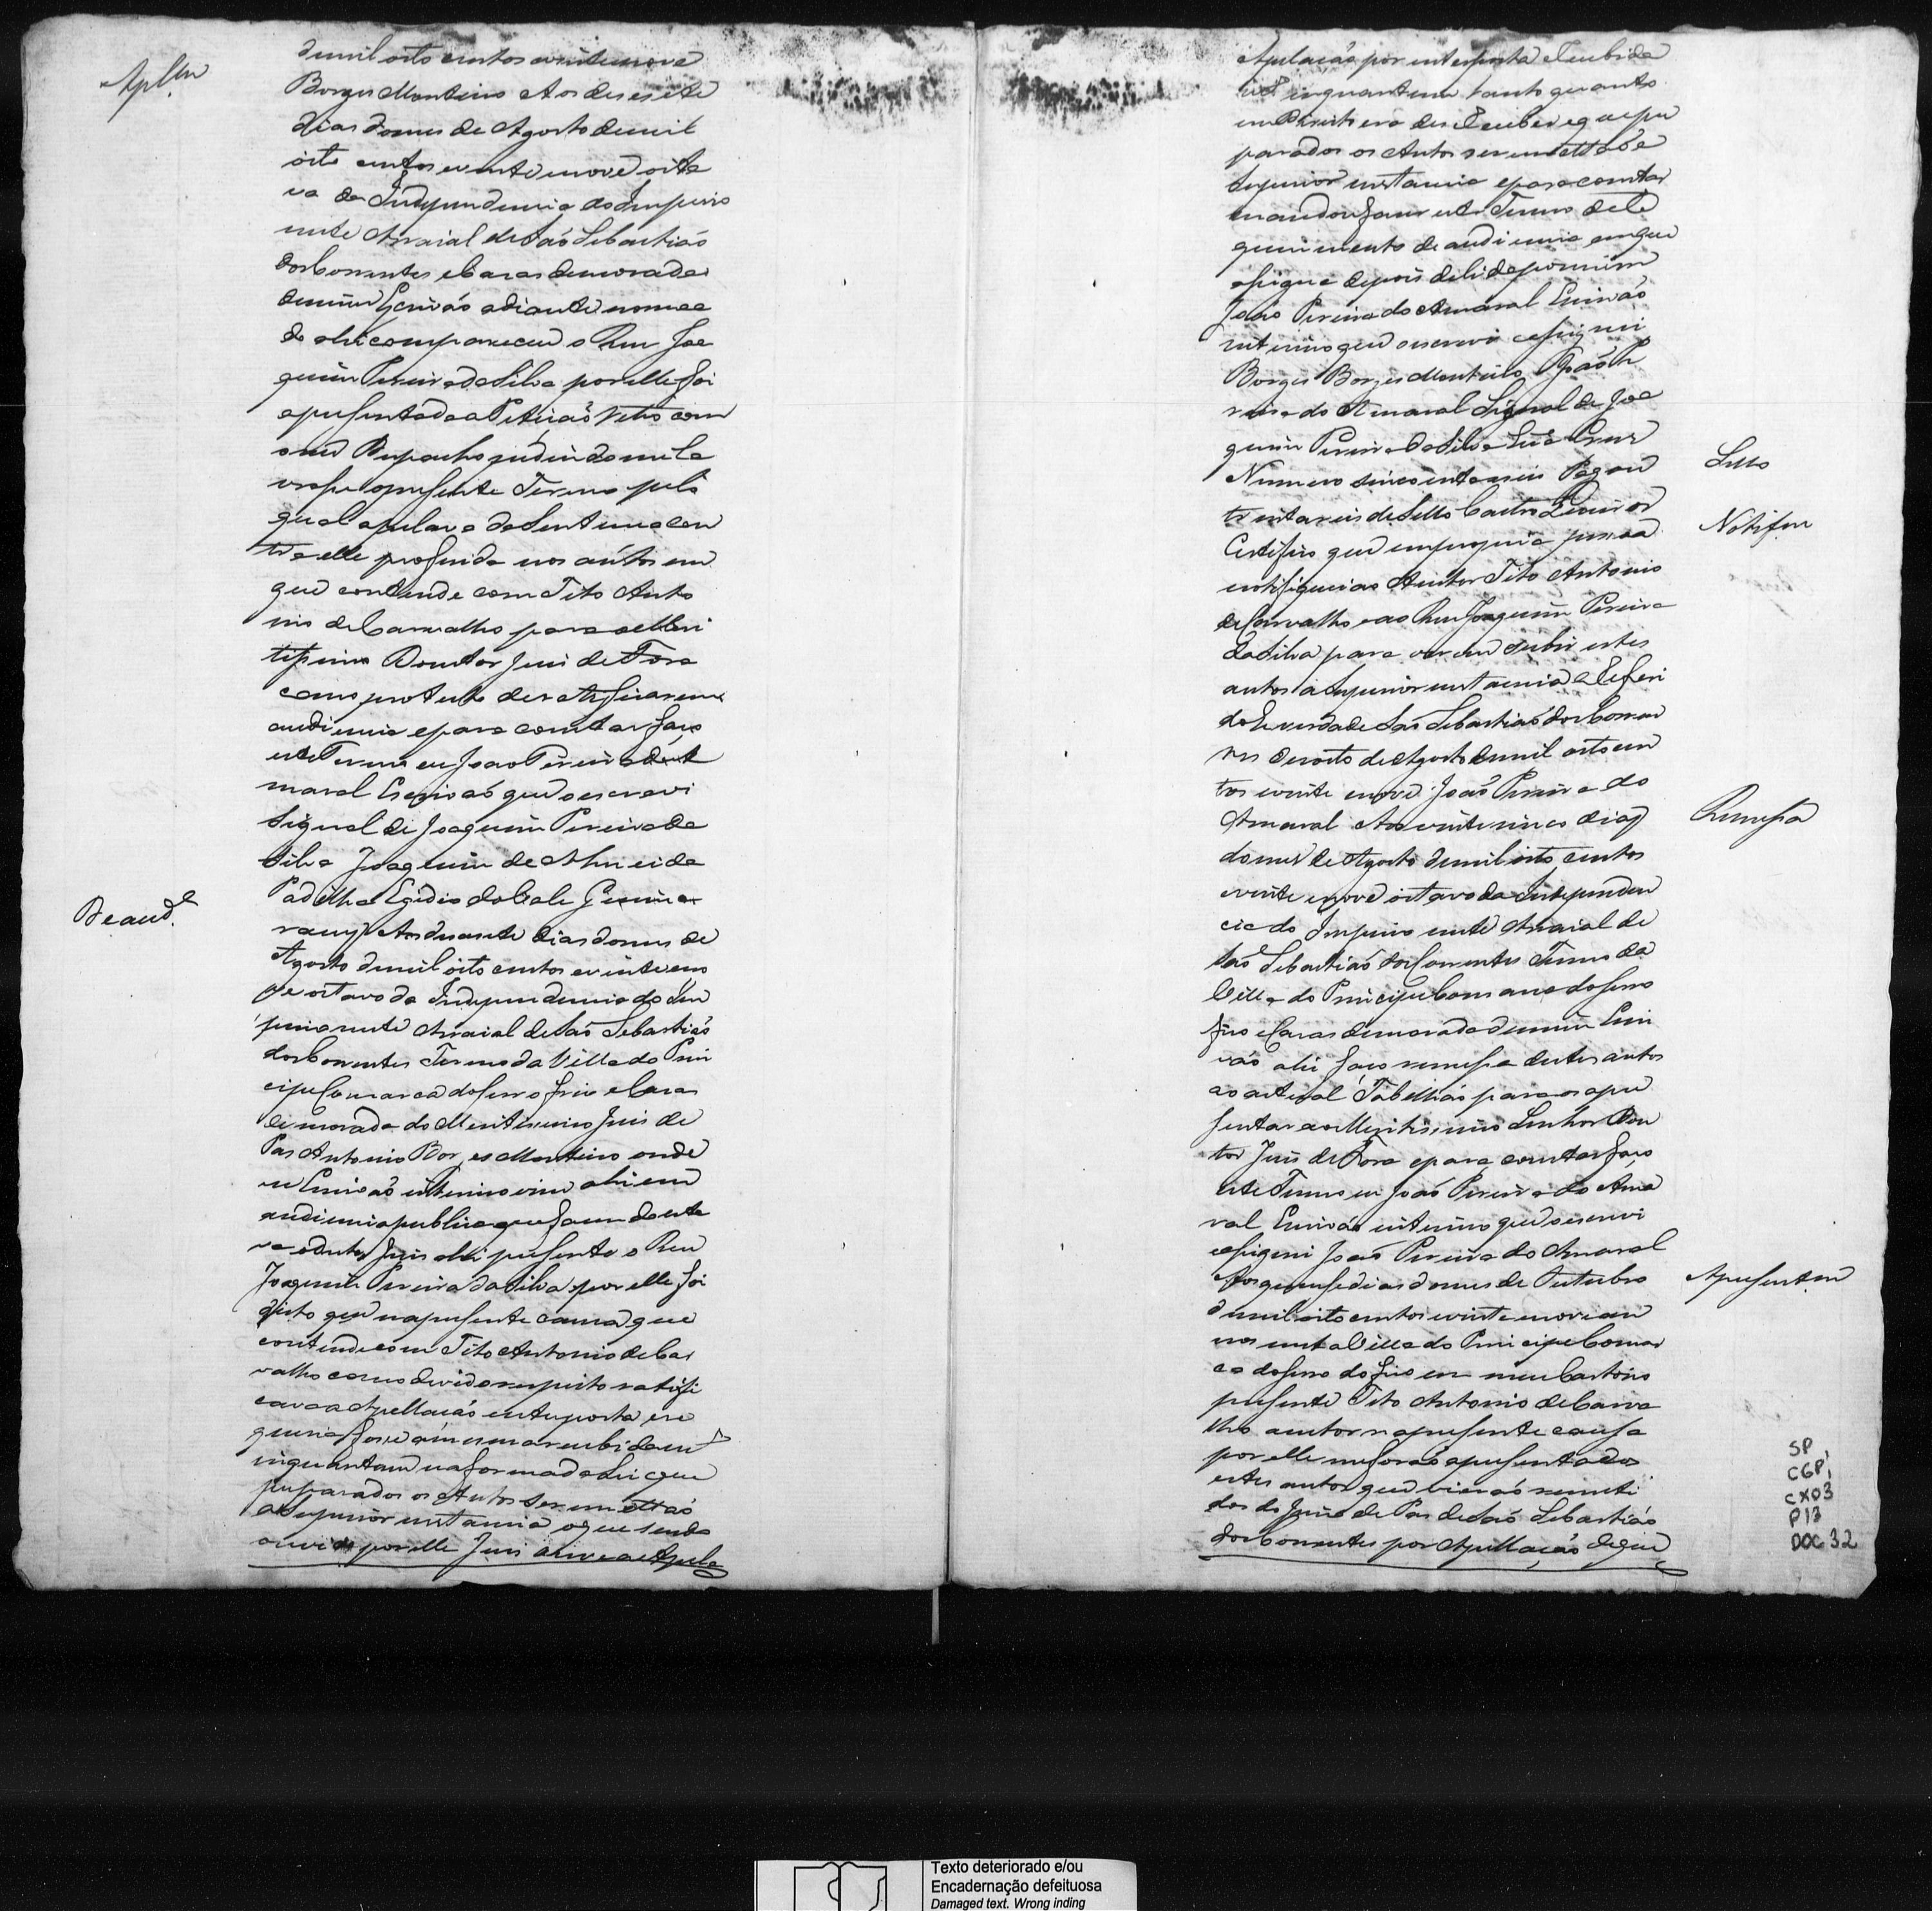 Apl.am
demil oito centos evintenove
Borges Monteiro Aos desesete
dias domes de Agosto demil
oito centos evinte enove oita
va da Independencia do Imperio
neste Arraial de Saõ Sebastiaõ
dosCorrentes eCazas demorada
demim Escrivaõ adiante nomea
do ahi compareceu o Reu Joa
quim Pereira daSilva por elle foi
apresentada a Petiçaõ retro com
o seu Despacho
o presente Termo pelo
qual apelava daSentença con
tra elle proferida nos aútos em
que contende com Tito Anto
nio deCarvalho para o Meri
tissimo Doutor Juis de Fora
com o protesto de ratificar em
audiencia epara constar faço
este Termo eu Joaõ Pereira do A
maral Escrivaõ que o escrevi
Signal de Joaquim Pereira da
Silva Joaquim de Almeida
Padilha Egidio do Vale Guima
De aud.e
raens Aos desasete dias domes de
Agosto demil oito centos evinte eno
ve oitavo da Independencia do Im
perio neste Arraial deSaõ Sebastiaõ
dosCorrentes Termo da Villa do Prin
cipe Comarca doSerro frio eCazas
de morada do Meritissimo Juis de
Pas Antonio Borges Monteiro onde
eu Escrivaõ interino vim ahi em
audiencia publica que fazendo esta
va o dito Juis ahi presente o Reu
Joaquim Pereira da Silva por elle foi
dito que na presente cauza que
contende com Tito Antonio deCar
valho como devido respeito ratifi
cava a Apellaçaõ interposta ere
queria
inquantum na forma da Lei eque
preparados os Autos se remettaõ
a Superior instancia oque sendo
ouvido por elle Juis ouve a Apela
Apelaçaõ por interposta e recebida
inquantum tanto quanto
em Direito era de se receber e que pre
parados os Autos se remettaõ a
Superior instancia epara constar
mandou fazer este Termo de re
querimento de audiencia em que
asigna depois delido por mim
Joaõ Pereira do Amaral Escrivaõ
interino que o escrevi e asignei
Borges Borges Monteiro Joaõ Pe
reira do Amaral Signal de Joa
quim Pereira da Silva Cruz
Sello
Numero sincoenta seis Pagou
trinta reis de Sello Castro
Notifi.am
Certifico que em propria pessoa
notifiquei ao Autor Tito Antonio
deCarvalho eao Reu Joaquim Pereira
da Silva para verem subir estes
autos a Superior instancia o referi
do he verdade Saõ Sebastiaõ dosCorren
tes desoito de Agosto demil oito cen
tos evinte enove Joaõ Pereira do
Remessa
Amaral Aos vinte sinco dias
do mes de Agosto demil oito centos
evinte enove oitavo da Independen
cia do Imperio neste Arraial de
Saõ Sebastiaõ dosCorrentes Termo da
Villa do Principe Comarca doSerro
frio eCazas demorada demim Escri
vaõ ahi faço remessa destes autos
ao actual Tabelliaõ para os apre
sentar ao Meritissimo Senhor Dou
tor Juis de Fora epara constar faço
este Termo eu Joaõ Pereira do Ama
ral Escrivaõ interino que o escrevi
easignei Joaõ Pereira do Amaral
Apresentam
Aos quinse dias domes de Outubro
demil oito centos evinte nove an
nos nesta Villa do Principe Comar
ca doSerro do frio em meu Cartorio
presente Tito Antonio deCarva
lho autor na presente causa
por elle me foraõ apresentados
estes autos que vieraõ remeti
dos do Juizo de Pas deSaõ Sebastiaõ
dosCorrentes por Apellaçaõ deque
SP
CGP1
CX03
P13
DOC 32
Texto deteriorado e/ou
Encadernação defeituosa
Damaged text. Wrong inding